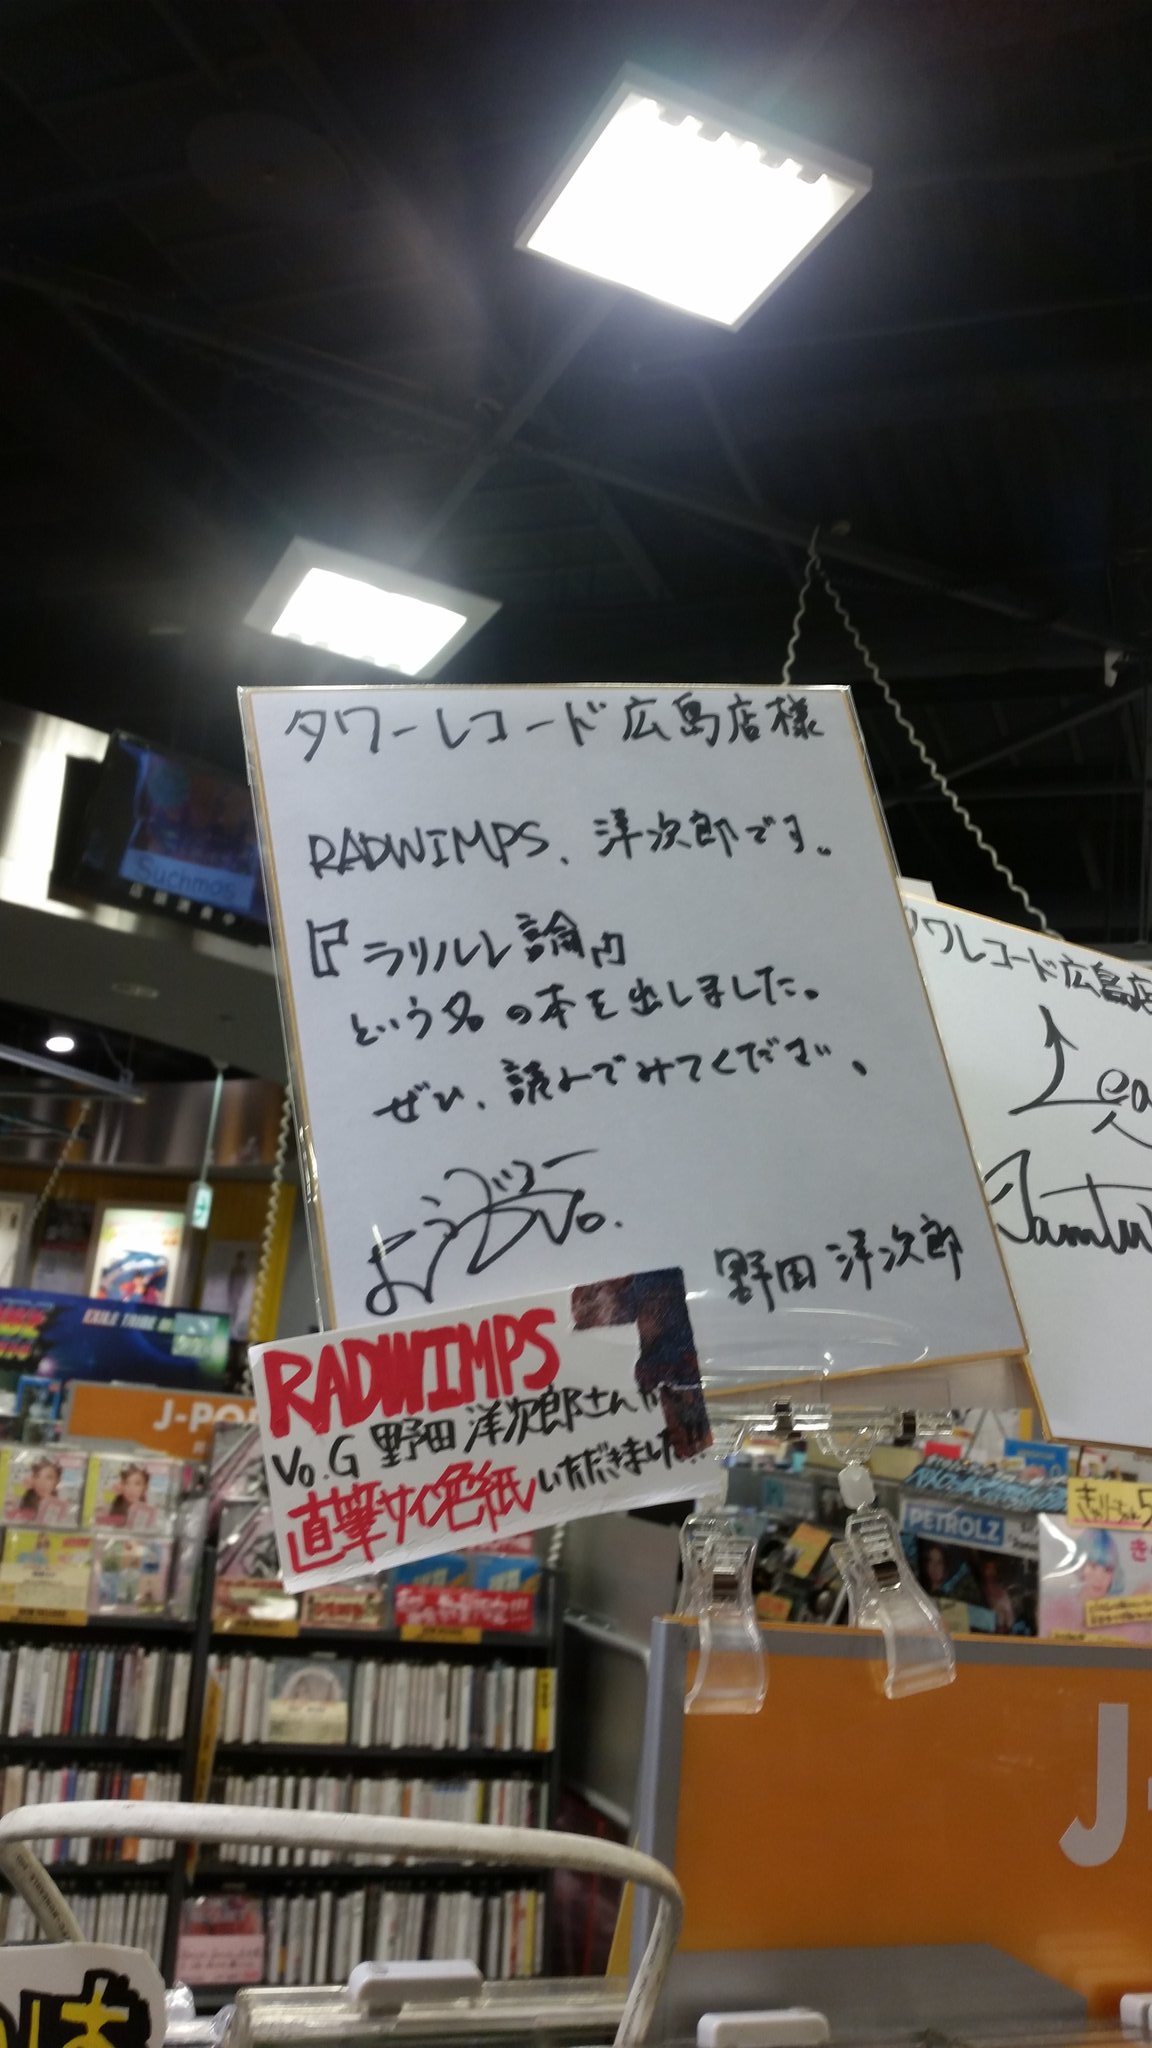 タワーレコード広島店様
RADWIMPS、洋次郎です。
『ラリルレ論』
という名の本を出しました。
ぜひ、読んでみてください。
野田 洋次郎
RADWIMPS
Vo.G 野田洋次郎さんが
直筆サイン色紙いただきました!!
タワレコード広島店
Suchmos
EXILE TRIBE
J-POP
PETROLZ
J-